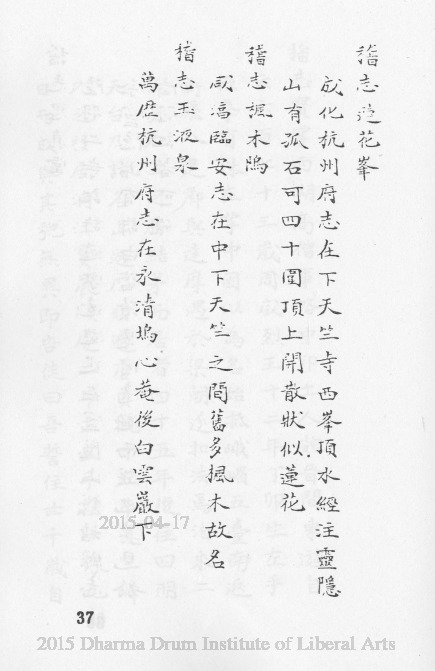 稽志蓮花峯
成化杭州府志在下天竺寺西峯頂水經注靈隱
山有孤石可四十圍頂上開散狀似蓮花
稽志楓木塢
咸淳臨安志在中下天竺之間舊多楓木故名
稽志玉液泉
萬歷杭州府志在永清塢心菴後白雲巖下
2015-04-17
37
2015 Dharma Drum Institute of Liberal Arts